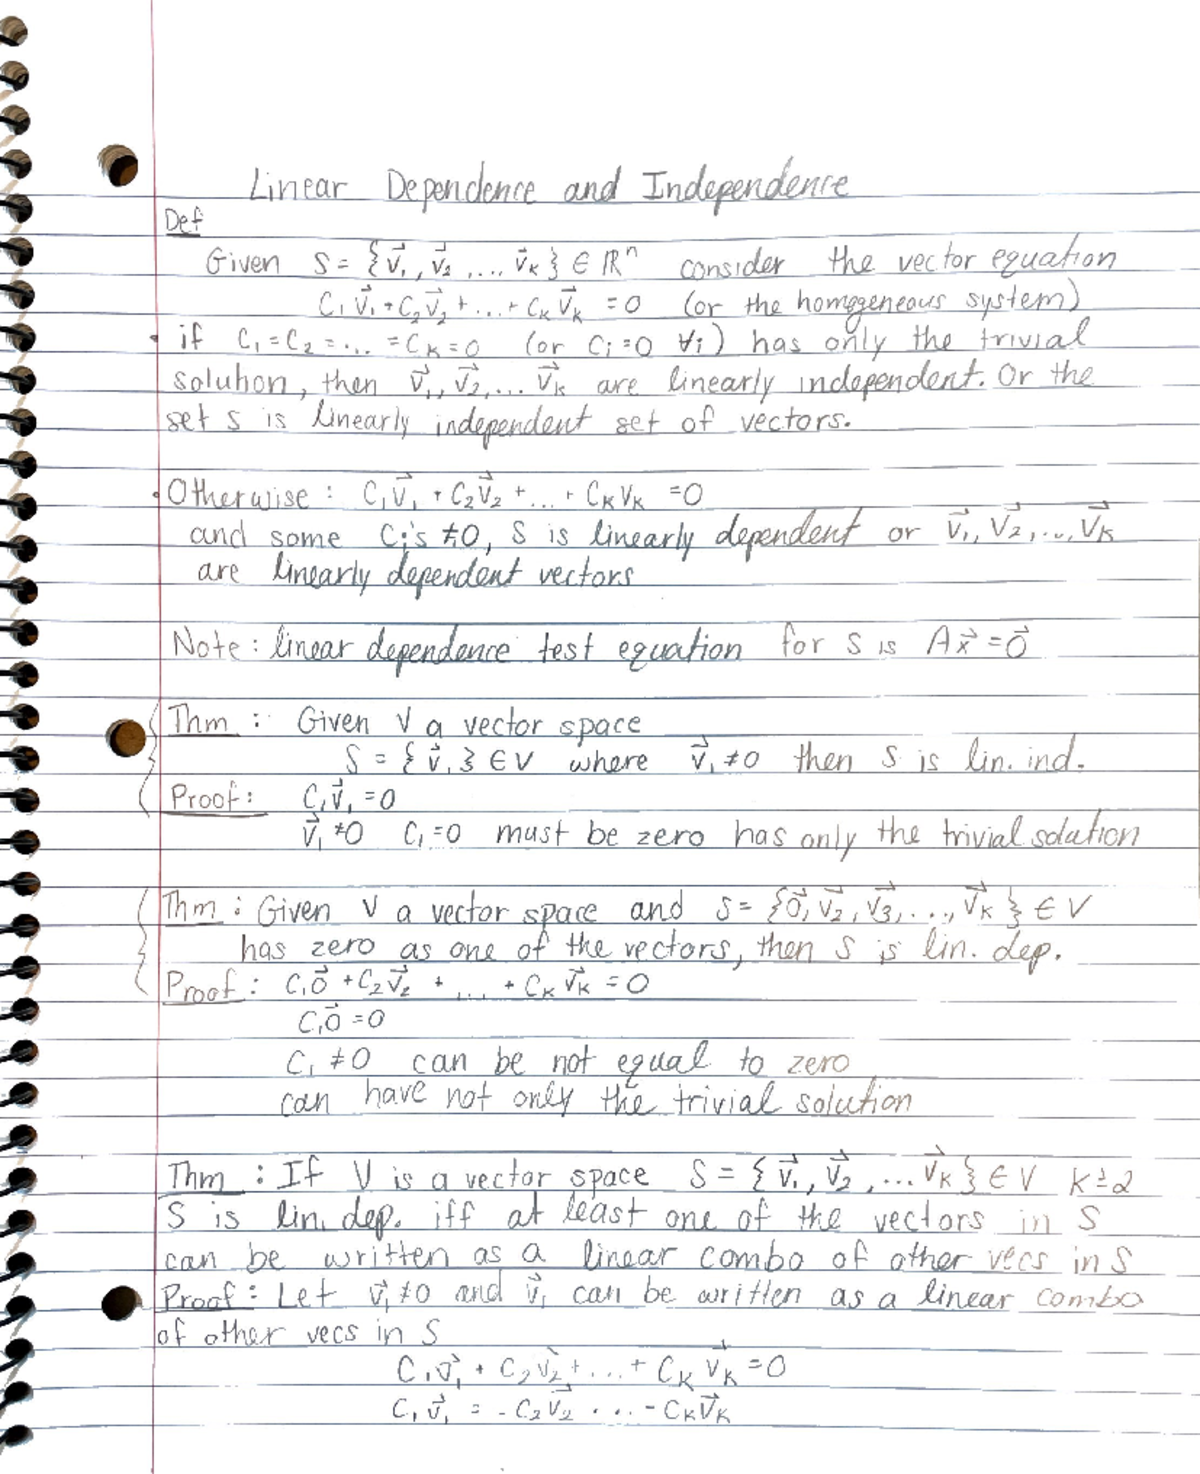 Linear Dependence and Independence
Def
Given S = {v⃗₁, v⃗₂, ... v⃗ₖ} ∈ ℝⁿ consider the vector equation
C₁v⃗₁ + C₂v⃗₂ + ... + Cₖv⃗ₖ = 0 (or the homogeneous system)
• if C₁ = C₂ = ... = Cₖ = 0 (or Cᵢ = 0 ∀i) has only the trivial
solution, then v⃗₁, v⃗₂, ... v⃗ₖ are linearly independent. Or the
set S is linearly independent set of vectors.
• Otherwise : C₁v⃗₁ + C₂v⃗₂ + ... + CₖVₖ = 0
and some Cᵢ's ≠ 0, S is linearly dependent or v⃗₁, v⃗₂, ..., v⃗ₖ
are linearly dependent vectors
Note : linear dependence test equation for S is Ax⃗ = 0⃗
Thm : Given V a vector space
S = {v⃗₁} ∈ V where v⃗₁ ≠ 0 then S is lin. ind.
Proof : C₁v⃗₁ = 0
v⃗₁ ≠ 0 C₁ = 0 must be zero has only the trivial solution
Thm : Given V a vector space and S = {0⃗, v⃗₂, v⃗₃, ..., v⃗ₖ} ∈ V
has zero as one of the vectors, then S is lin. dep.
Proof : C₁0⃗ + C₂v⃗₂ + ... + Cₖv⃗ₖ = 0
C₁0⃗ = 0
C₁ ≠ 0 can be not equal to zero
can have not only the trivial solution
Thm : If V is a vector space S = {v⃗₁, v⃗₂, ... v⃗ₖ} ∈ V k ≥ 2
S is lin. dep. iff at least one of the vectors in S
can be written as a linear combo of other vecs in S
Proof : Let v⃗₁ ≠ 0 and v⃗₁ can be written as a linear combo
of other vecs in S
C₁v⃗₁ + C₂v⃗₂ + ... + Cₖv⃗ₖ = 0
C₁v⃗₁ = - C₂v⃗₂ ... - Cₖv⃗ₖ